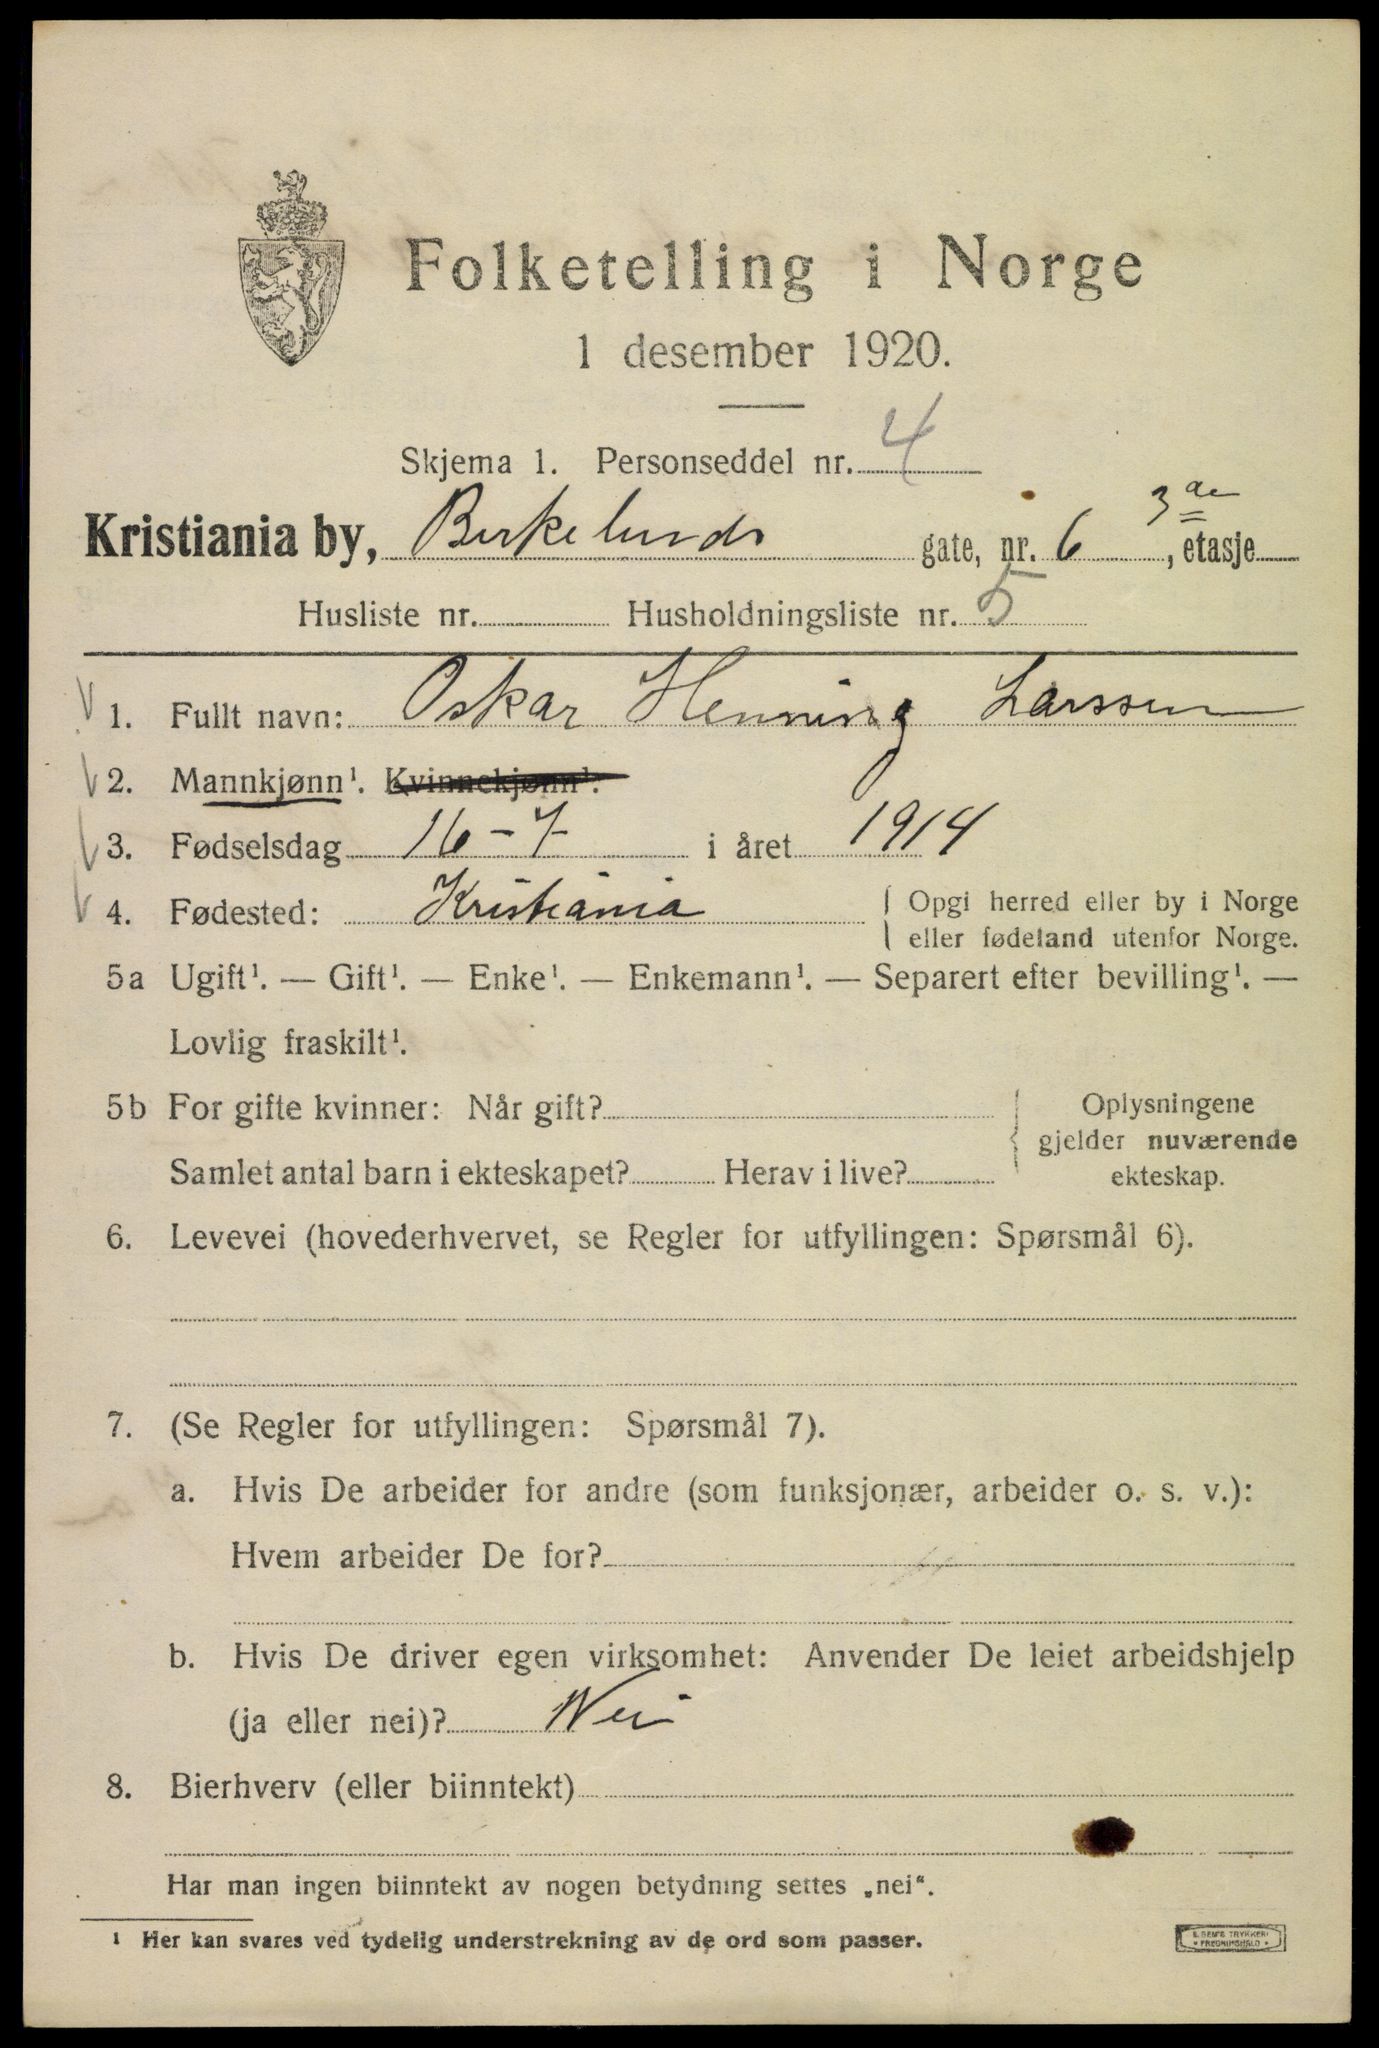 Folketelling i Norge
1 desember 1920.
Skjema 1. Personseddel nr. 4
Kristiania by, Birkelunds gate, nr. 6, 3de etasje
Husliste nr. Husholdningsliste nr. 5
1. Fullt navn: Oskar Henning Larssen
2. Mannkjønn¹. Kvinnekjønn¹.
3. Fødselsdag 16-7 i året 1914
4. Fødested: Kristiania Opgi herred eller by i Norge
eller fødeland utenfor Norge.
5a Ugift¹. — Gift¹. — Enke¹. — Enkemann¹. — Separert efter bevilling¹. —
Lovlig fraskilt¹.
5b For gifte kvinner: Når gift? Oplysningene
gjelder nuværende
Samlet antal barn i ekteskapet? Herav i live? ekteskap.
6. Levevei (hovederhvervet, se Regler for utfyllingen: Spørsmål 6).
7. (Se Regler for utfyllingen: Spørsmål 7).
a. Hvis De arbeider for andre (som funksjonær, arbeider o. s. v.):
Hvem arbeider De for?
b. Hvis De driver egen virksomhet: Anvender De leiet arbeidshjelp
(ja eller nei)? Nei
8. Bierhverv (eller biinntekt)
Har man ingen biinntekt av nogen betydning settes „nei“.
¹ Her kan svares ved tydelig understrekning av de ord som passer.
E. SEM'S TRYKKERI
• FREDRIKSHALD •